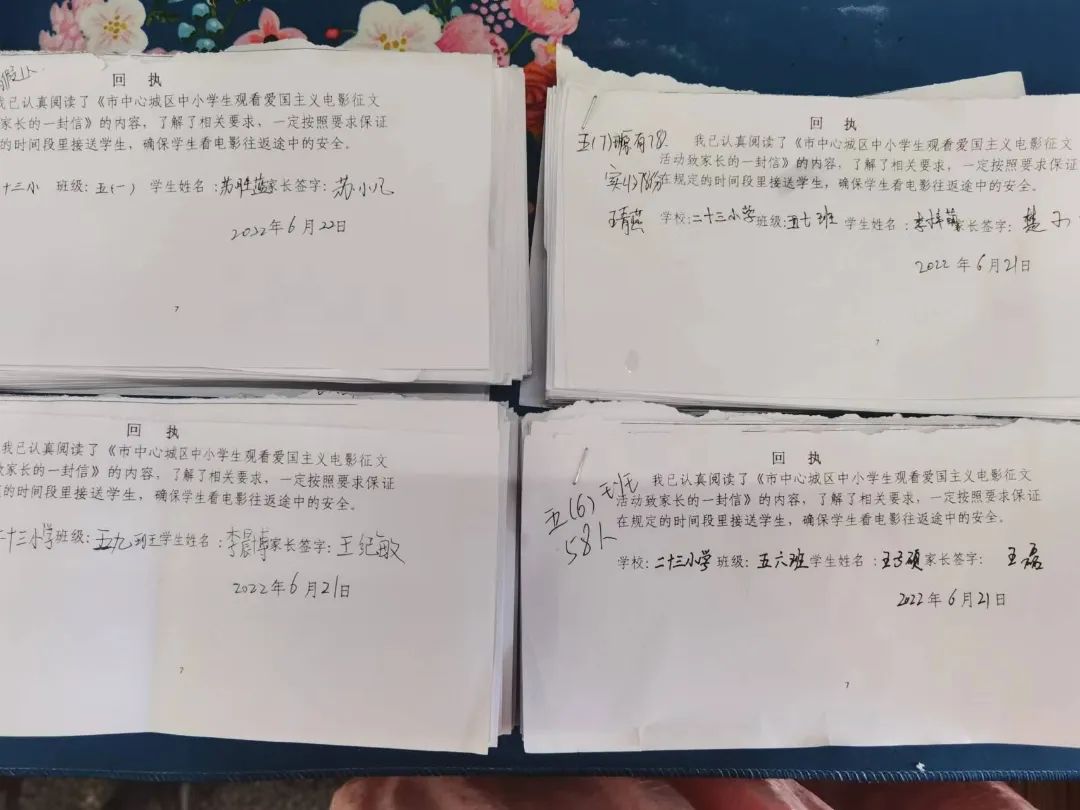 回 执
我已认真阅读了《市中心城区中小学生观看爱国主义电影征文
家长的一封信》的内容，了解了相关要求，一定按照要求保证
的时间段里接送学生，确保学生看电影往返途中的安全。
十三小 班级：五(一) 学生姓名：苏 家长签字：苏小凡
2022年6月22日
7
回 执
五(7) 有78 我已认真阅读了《市中心城区中小学生观看爱国主义电影征文
活动致家长的一封信》的内容，了解了相关要求，一定按照要求保证
实收78份 在规定的时间段里接送学生，确保学生看电影往返途中的安全。
学校：二十三小学 班级：五七班 学生姓名：李梓萌 家长签字：楚子
2022年6月21日
7
回 执
我已认真阅读了《市中心城区中小学生观看爱国主义电影征文
致家长的一封信》的内容，了解了相关要求，一定按照要求保证
的时间段里接送学生，确保学生看电影往返途中的安全。
二十三小学 班级：五九班 学生姓名：李晨博 家长签字：王纪敏
2022年6月21日
7
回 执
我已认真阅读了《市中心城区中小学生观看爱国主义电影征文
五(6) 活动致家长的一封信》的内容，了解了相关要求，一定按照要求保证
58人 在规定的时间段里接送学生，确保学生看电影往返途中的安全。
学校：二十三小学 班级：五六班 学生姓名：王子硕 家长签字：王磊
2022年6月21日
7